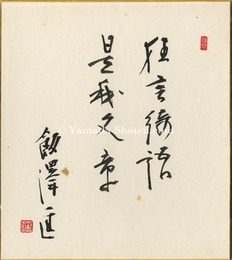 狂言綺語
是我文章
飯澤匡
© Yamada Shoten.com